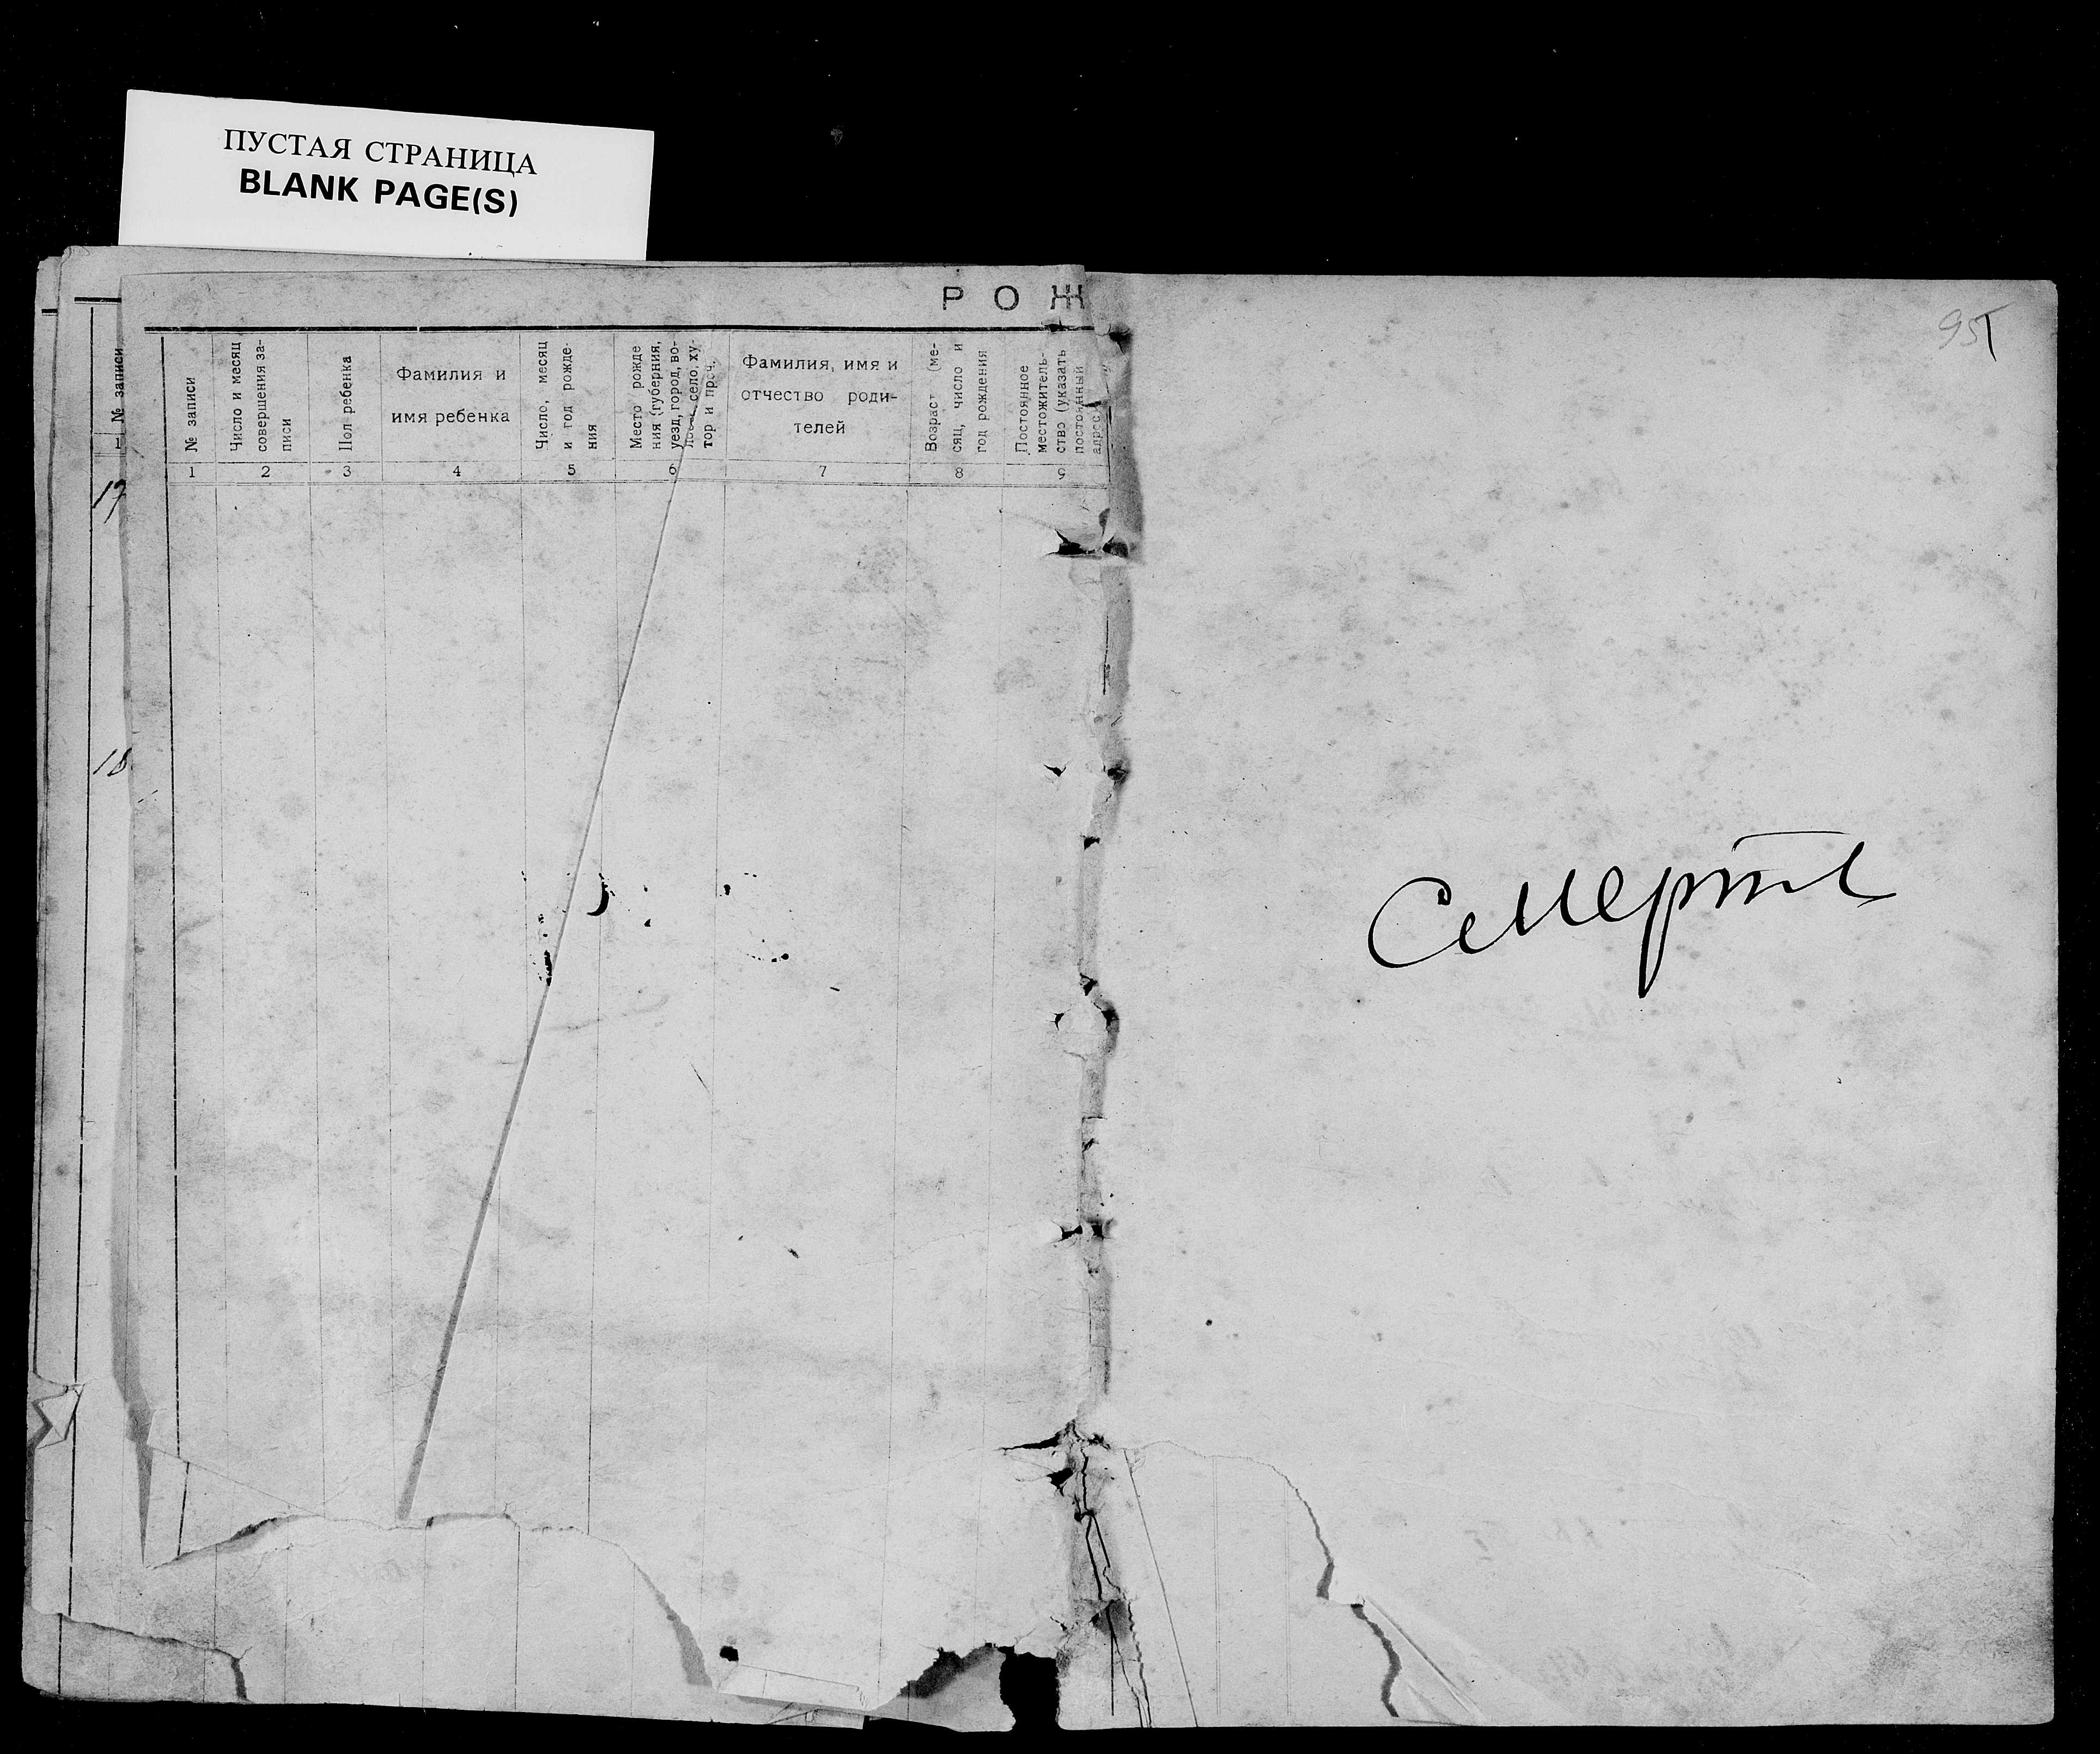 ПУСТАЯ СТРАНИЦА
BLANK PAGE(S)
РОЖ
№ записи
1
17
18
№ записи
Число и месяц
совершения за-
писи
Пол ребенка
Фамилия и
имя ребенка
Число, месяц
и год рожде-
ния
Место рожде
ния (губерния,
уезд, город, во-
село, ху-
тор и проч.
Фамилия, имя и
отчество роди-
телей
Возраст (ме-
сяц, число и
год рождения
Постоянное
местожитель-
ство (указать
постоянный
адрес
1 2 3 4 5 6 7 8 9
95
Смерть